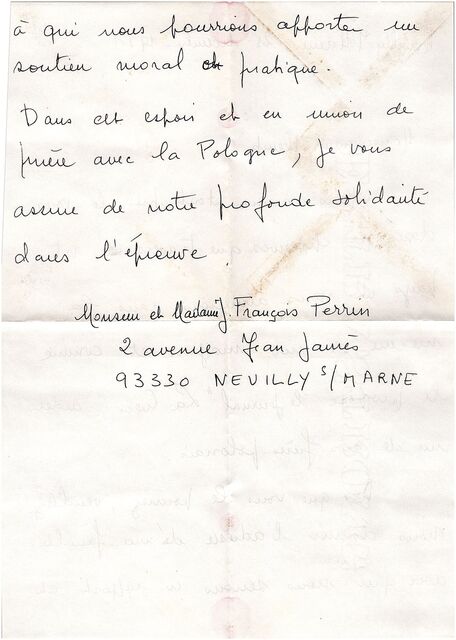 à qui nous pourrions apporter un
soutien moral et pratique.
Dans cet espoir et en union de
prière avec la Pologne, je vous
assure de notre profonde solidarité
dans l'épreuve.
Monsieur et Madame J. François Perrin
2 avenue Jean Jaurès
93330 NEUILLY S/MARNE